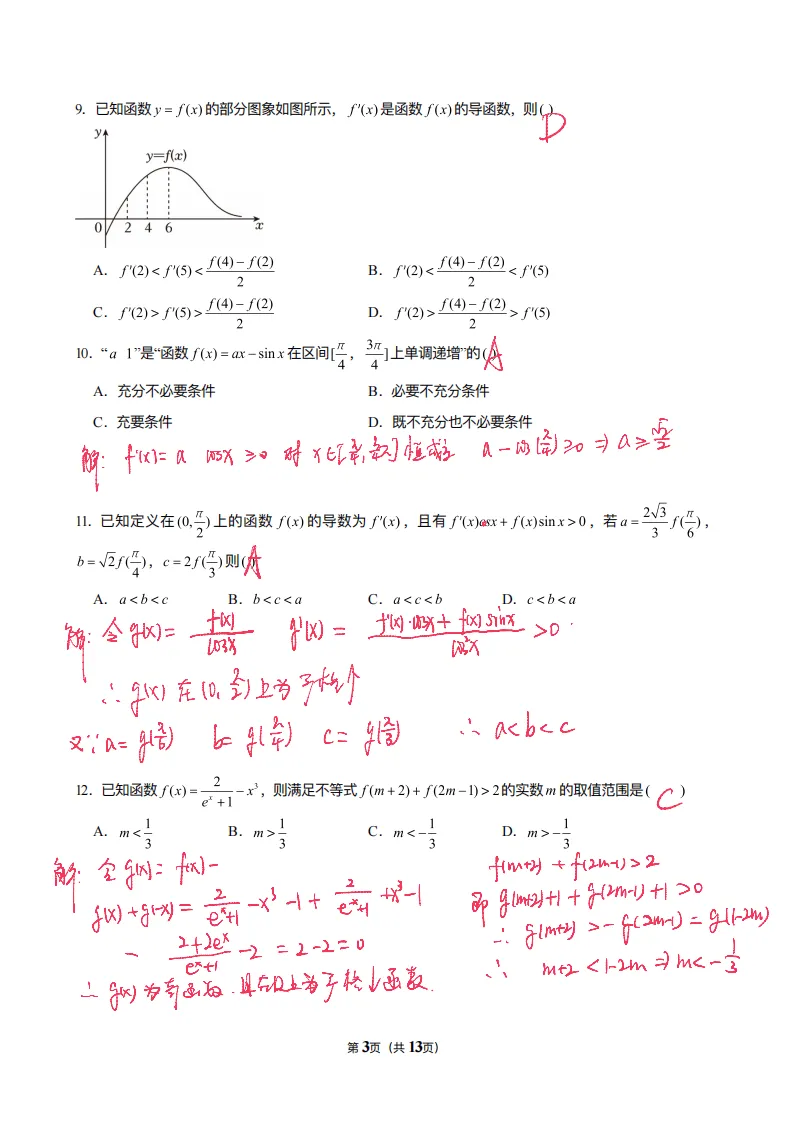 9．已知函数 y = f(x) 的部分图象如图所示， f′(x) 是函数 f(x) 的导函数，则( )
D
y
y=f(x)
0 2 4 6 x
A． f′(2) < f′(5) < (f(4) − f(2))/2 B． f′(2) < (f(4) − f(2))/2 < f′(5)
C． f′(2) > f′(5) > (f(4) − f(2))/2 D． f′(2) > (f(4) − f(2))/2 > f′(5)
10．“ a 1 ”是“函数 f(x) = ax − sin x 在区间[π/4 ， 3π/4]上单调递增”的( ) A
A．充分不必要条件 B．必要不充分条件
C．充要条件 D．既不充分也不必要条件
解: f'(x)= a cosx ≥0 对 x∈[π/4, 3π/4] 恒成立 a − cos(π/4) ≥0 ⇒ a ≥ √2/2
11．已知定义在 (0, π/2) 上的函数 f(x) 的导数为 f′(x) ，且有 f′(x)cosx + f(x)sin x > 0 ，若 a = 2 3/3 f(π/6) ，
b = √2 f(π/4) ， c = 2f(π/3) 则( ) A
A． a < b < c B． b < c < a C． a < c < b D． c < b < a
解: 令 g(x)= f(x)/cosx g'(x) = (f'(x)·cosx + f(x) sinx)/cos²x >0
∴ g(x) 在 (0, π/2) 上为单增↑
又∵ a= g(π/6) b= g(π/4) c= g(π/3) ∴ a<b<c
12．已知函数 f(x) = 2/(eˣ + 1) − x³ ，则满足不等式 f(m + 2) + f(2m − 1) > 2 的实数 m 的取值范围是( C )
A． m < 1/3 B． m > 1/3 C． m < − 1/3 D． m > − 1/3
解: 令 g(x)= f(x)−
g(x)+g(-x) = 2/(eˣ+1) −x³ −1 + 2/(e⁻ˣ+1) +x³−1
= (2+2eˣ)/(eˣ+1) −2 = 2−2=0
∴ g(x) 为奇函数. 且在R上为单↓函数.
f(m+2) + f(2m−1)>2
即 g(m+2)+1 + g(2m−1) +1 >0
∴ g(m+2) > −g(2m−1) = g(1−2m)
∴ m+2 < 1−2m ⇒ m< −1/3
第 3页（共 13页）